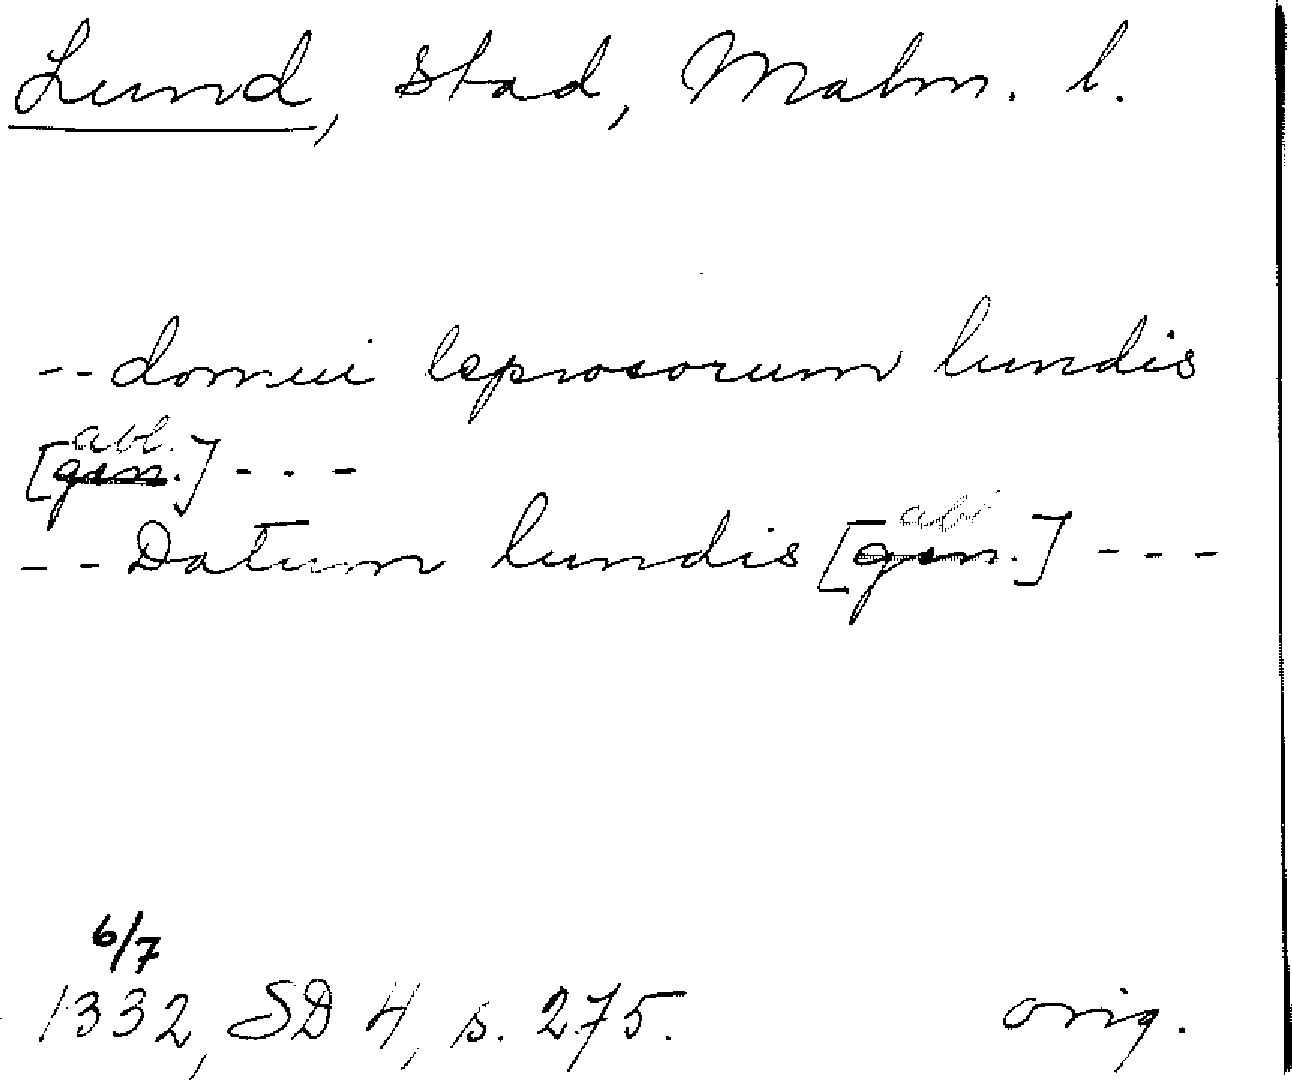 Lund, stad, Malm. l.
-- domui leprosorum lundis
abl.
[gen.] ---
abl
-- Datum lundis [gen.] ---
6/7
1332, SD 4, s. 275. orig.